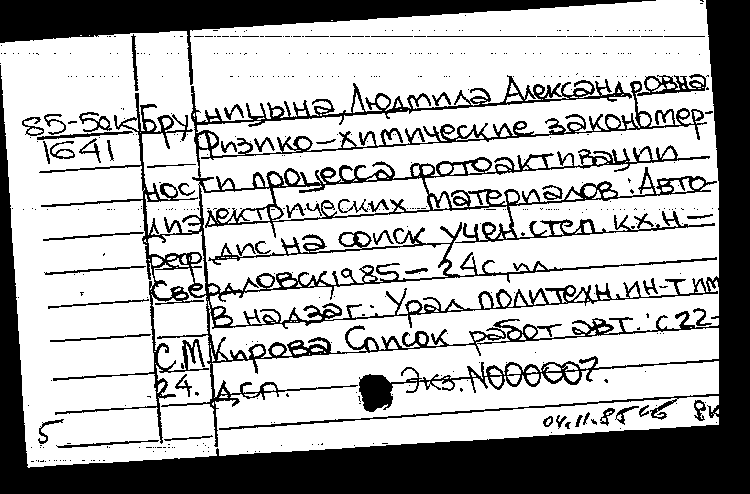 85-50к Брусницына, Людмила Александровна
1641 Физико-химические закономер-
ности процесса фотоактивации
диэлектрических материалов: Авто-
реф. дис. на соиск. учен. степ. к.х.н.—
Свердловск, 1985.— 24с, ил.
В надзаг.: Урал. политехн. ин-т им.
С.М. Кирова. Список работ авт.: с 22-
24. Д.с.п. Экз. N000007.
5 04.11.85